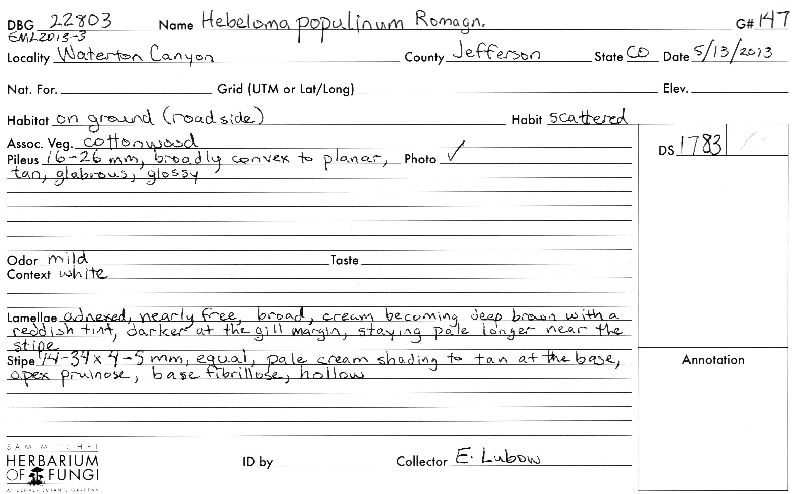 DBG 22803 Name Hebeloma populinum Romagn. G# 147
EML2013-3
Locality Waterton Canyon County Jefferson State CO Date 5/13/2013
Nat. For. Grid (UTM or Lat/Long) Elev.
Habitat on ground (roadside) Habit scattered
Assoc. Veg. cottonwood
DS 1783
Pileus 16-26 mm, broadly convex to planar, Photo ✓
tan, glabrous, glossy
Odor mild Taste
Context white
Lamellae adnexed, nearly free, broad, cream becoming deep brown with a
reddish tint, darker at the gill margin, staying pale longer near the
stipe
Stipe 44-34 x 4-5 mm, equal, pale cream shading to tan at the base,
apex pruinose, base fibrillose, hollow
Annotation
SAM MITCHEL
HERBARIUM
OF FUNGI
ID by Collector E. Lubow